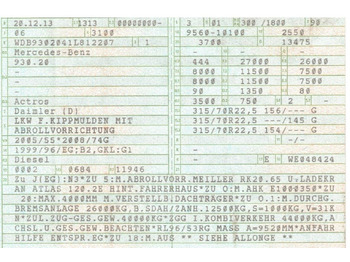 20.12.13 1313 00000000- 3 01 300 /1800 90
06 3100 9560-10100 2550
WDB9302041L812207 1 3700 13475
Mercedes-Benz - - -
930.20 444 27000 26000
- 8000 11500 7500
- 8000 11500 7500
- 90 1350 80
Actros 3500 750 2 -
Daimler (D) 315/70R22,5 156/--- G
LKW F.KIPPMULDEN MIT 315/70R22,5 ---/145 G
ABROLLVORRICHTUNG 315/70R22,5 154/--- G
2005/55*2008/74G - -/-
1999/96/EG;B2,GKL:G1 - -
Diesel - - WE048424
0002 0684 11946
Zu J(EG):N3*ZU 5:M.ABROLLVORR.MEILLER RK20.65 U.LADEKR
AN ATLAS 120.2E HINT.FAHRERHAUS*ZU O:M.AHK E1000350*ZU
20:MAX.4000MM M.VERSTELLB.DACHTRÄGER*ZU O.1:M.DURCHG.
BREMSANLAGE 26000KG,B.SDAH/ZANH.12500KG,S=1000KG,V=31K
N*ZUL.ZÜG-GES.GEW.40000KG*ZGG I.KOMBIVERKEHR 44000KG,A
CHSL.U.GES.GEW.BEACHTEN*RL96/53RG MASS A=9520MM*ANFAHR
HILFE ENTSPR.EG*ZU 18:M.AUS ** SIEHE ALLONGE **